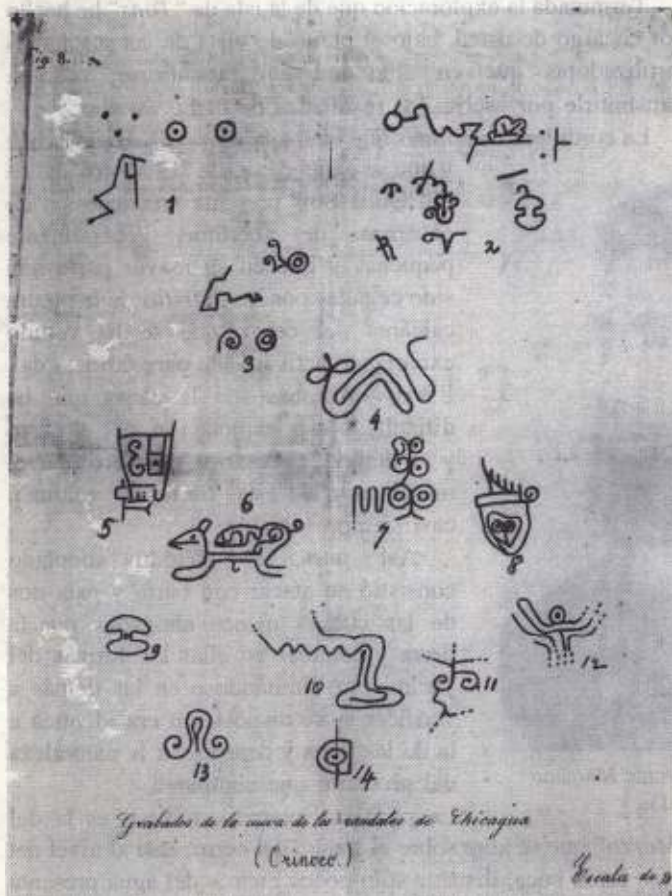 Fig. 8.
1
2
3
4
5
6
7
8
9
10
11
12
13
14
Grabados de la cueva de los raudales de Chicagua
(Orinoco.)
Escala de